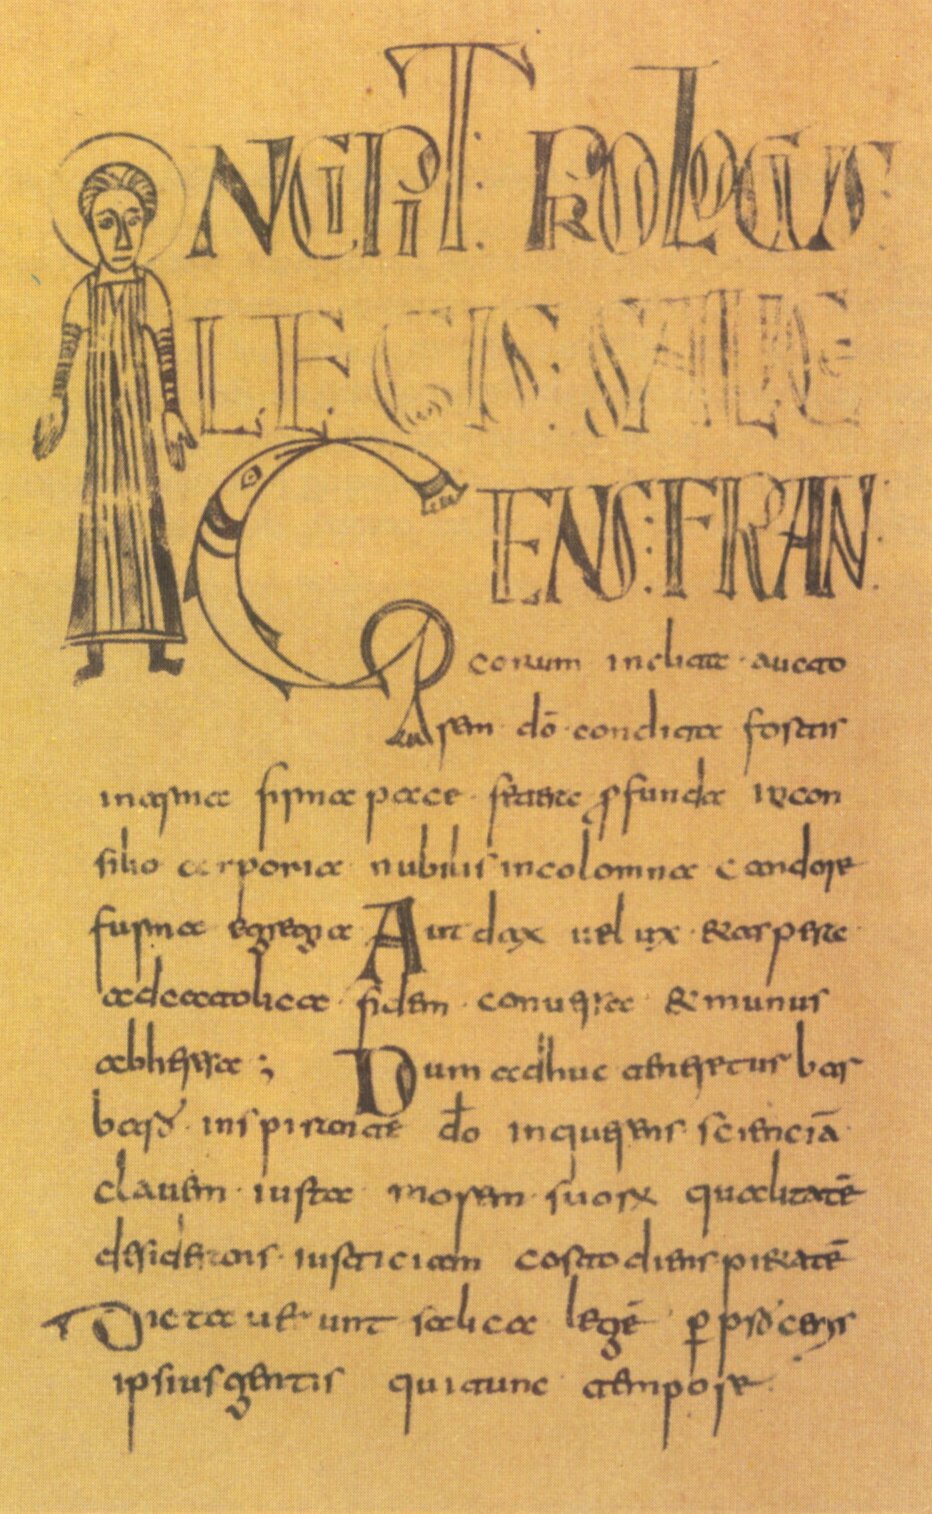 INCIPIT PROLOGUS
LEGIS SALICE
GENS FRAN
corum inclita aucto
rem dō condita fortis
in arma firma pace fetere profunda in con
silio corporia nubilis incolomna candore
forma egregia Audax uelux et aspere
ad catolica fidem conuersa et munus
ab heresa; Dum adhuc teneretus bar
bara inspirante dō inquerens scienciā
clauem iusta morem suorum qualitatē
desiderans iusticiam costodiens pietatē
Dictauerunt salica legē per proceris
ipsius gentis qui tunc tempore